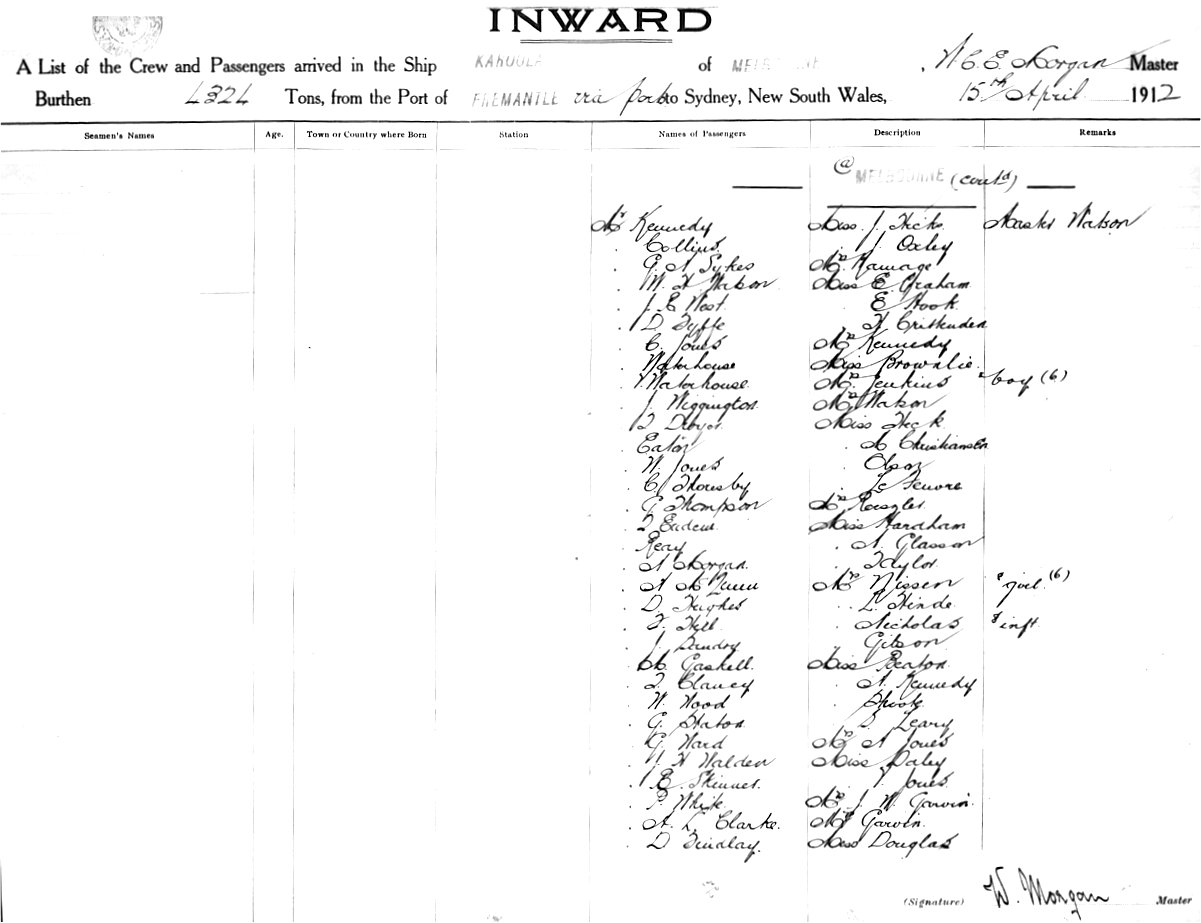 INWARD
A List of the Crew and Passengers arrived in the Ship KAROOLA of MELBOURNE, W. E. Morgan Master
Burthen 4324 Tons, from the Port of FREMANTLE via ports to Sydney, New South Wales, 15th April 1912
Seamen's Names Age. Town or Country where Born Station Names of Passengers Description Remarks
@ MELBOURNE (contd)
Mr Kennedy Miss J. Hicks Master Watson
. Collins . J. Oxley
. G. A Sykes Mrs Ramage
. W. H. Watson Miss E. Graham
. J. E West . E Hook
. D Fyffe . H Crittenden
. C. Jones Mrs Kennedy
. Waterhouse Miss Brownlie
. Waterhouse Mrs Jenkins " boy (6)
. J. Wiggington Mrs Watson
. T Dwyer Miss Heck
. Eaton . A Christiansen
. W. Jones . Olson
. C. Thoresby . Le Feuvre
. G Thompson Mrs
. T Miss Hardham
. Reay . A. Glasson
. A Morgan . Taylor
. A McQueen Mrs Nissen " girl (6)
. D. Hughes . L. Hinde
. F. Hill . Nicholas & inft
. J. Gibson
. M. Gaskell Miss Beaton
. T. Clancy . A. Kennedy
. W. Wood .
. G. Staton . S. Leary
. G. Ward Mrs A Jones
. H Walden Miss Daley
. E. Skinner . Jones
. P. White Mrs J. W. Garvin
. A. L. Clarke Mr Garvin
. D Findlay Miss Douglas
(Signature) W. Morgan Master